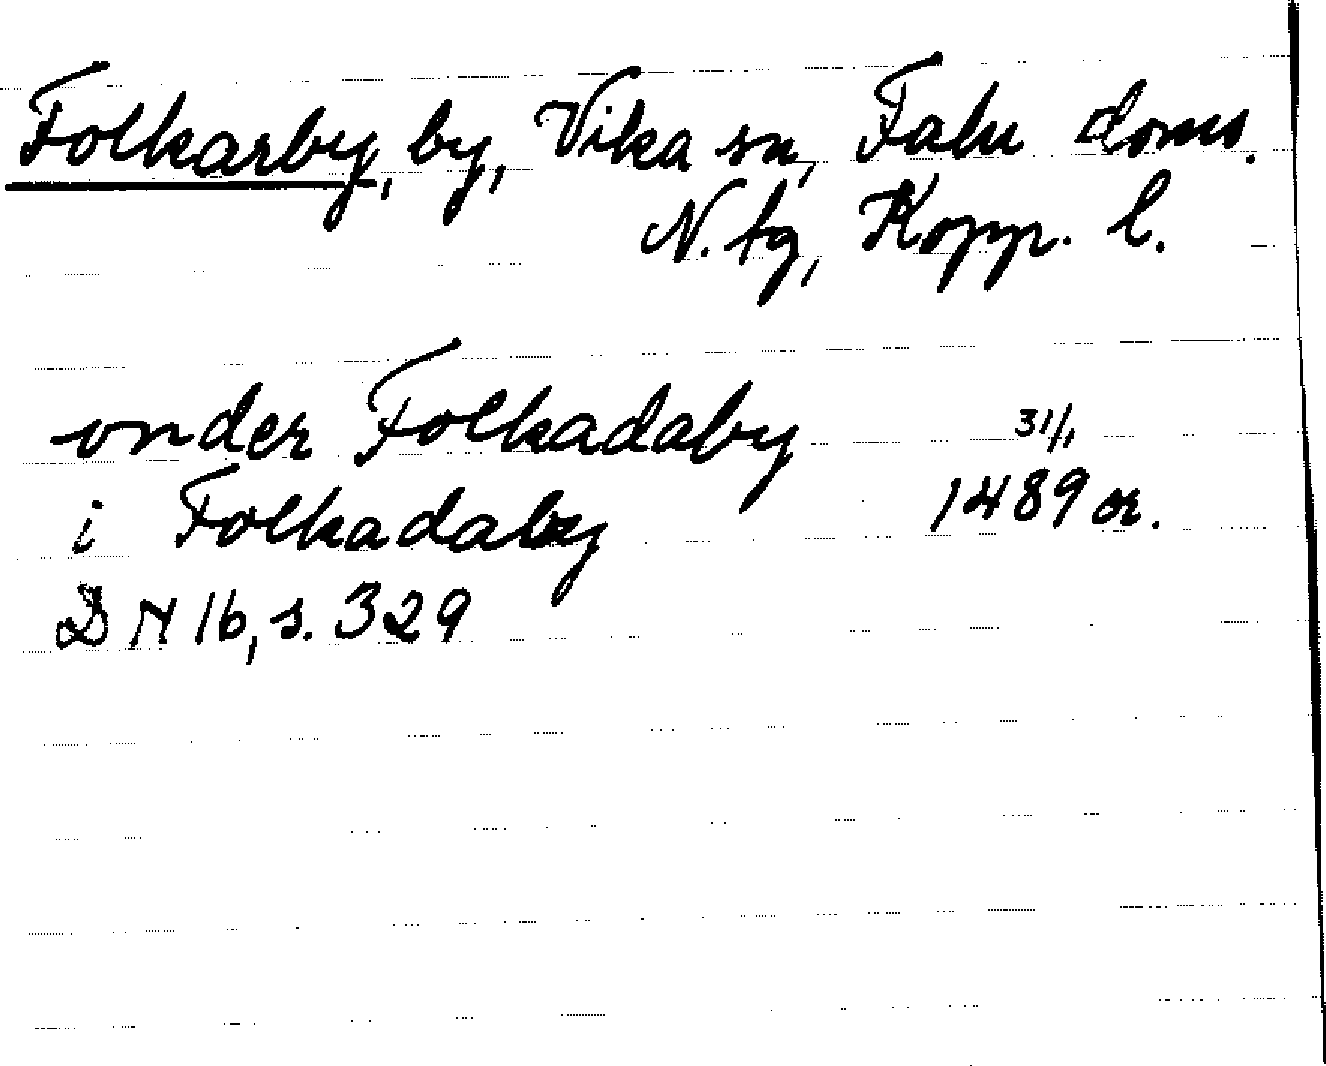 Folkarby, by, Vika sn, Falu doms.
N. tg, Kopp. l.
vnder Folkadaby 31/1
i Folkadaby 1489 or.
DN 16, s. 329